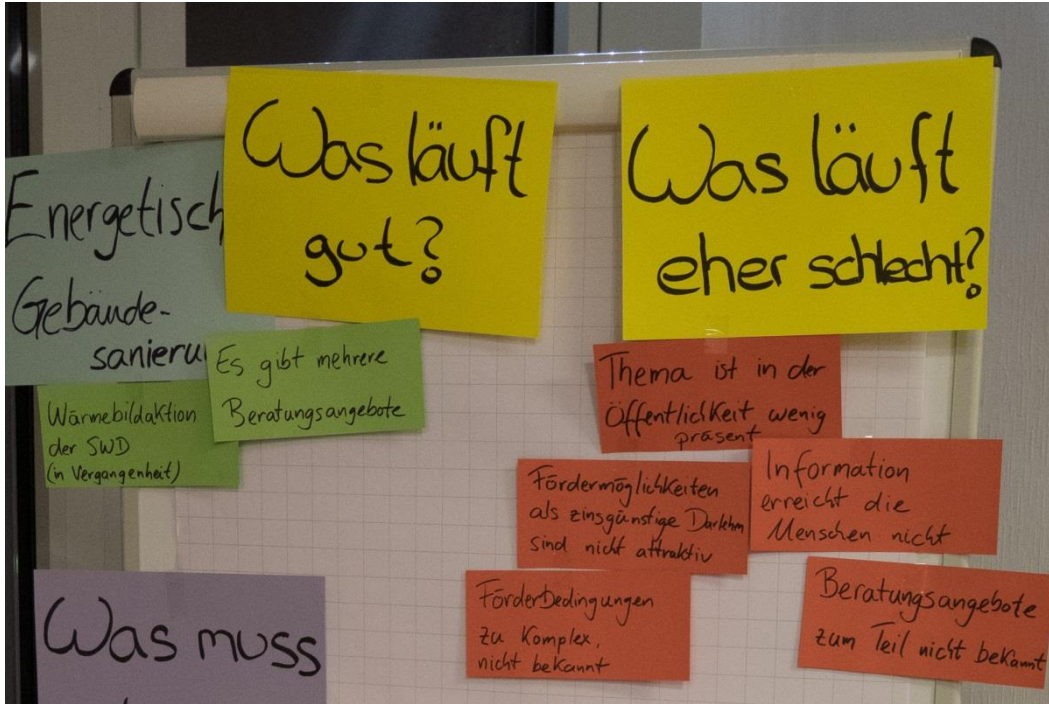 Energetisch
Gebäude-
sanieru
Was läuft
gut?
Was läuft
eher schlecht?
Es gibt mehrere
Beratungsangebote
Wärmebildaktion
der SWD
(in Vergangenheit)
Thema ist in der
Öffentlichkeit wenig
präsent
Fördermöglichkeiten
als zinsgünstige Darlehn
sind nicht attraktiv
Information
erreicht die
Menschen nicht
Förderbedingungen
zu Komplex,
nicht bekannt
Beratungsangebote
zum Teil nicht bekannt
Was muss